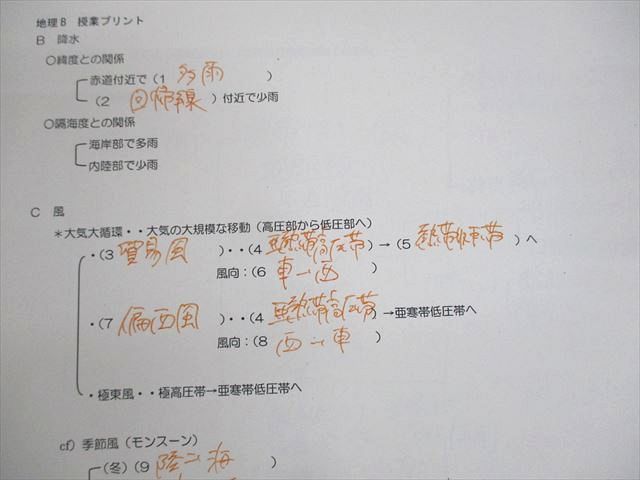 地理B 授業プリント
B 降水
○緯度との関係
赤道付近で(1 多雨 )
(2 回帰線 )付近で少雨
○隔海度との関係
海岸部で多雨
内陸部で少雨
C 風
*大気大循環・・大気の大規模な移動(高圧部から低圧部へ)
・(3 貿易風 )・・(4 亜熱帯高圧帯)→(5 熱帯低圧帯 )へ
風向:(6 東→西 )
・(7 偏西風 )・・(4 亜熱帯高圧帯)→亜寒帯低圧帯へ
風向:(8 西→東 )
・極東風・・極高圧帯→亜寒帯低圧帯へ
cf) 季節風(モンスーン)
(冬)(9 陸→海 )